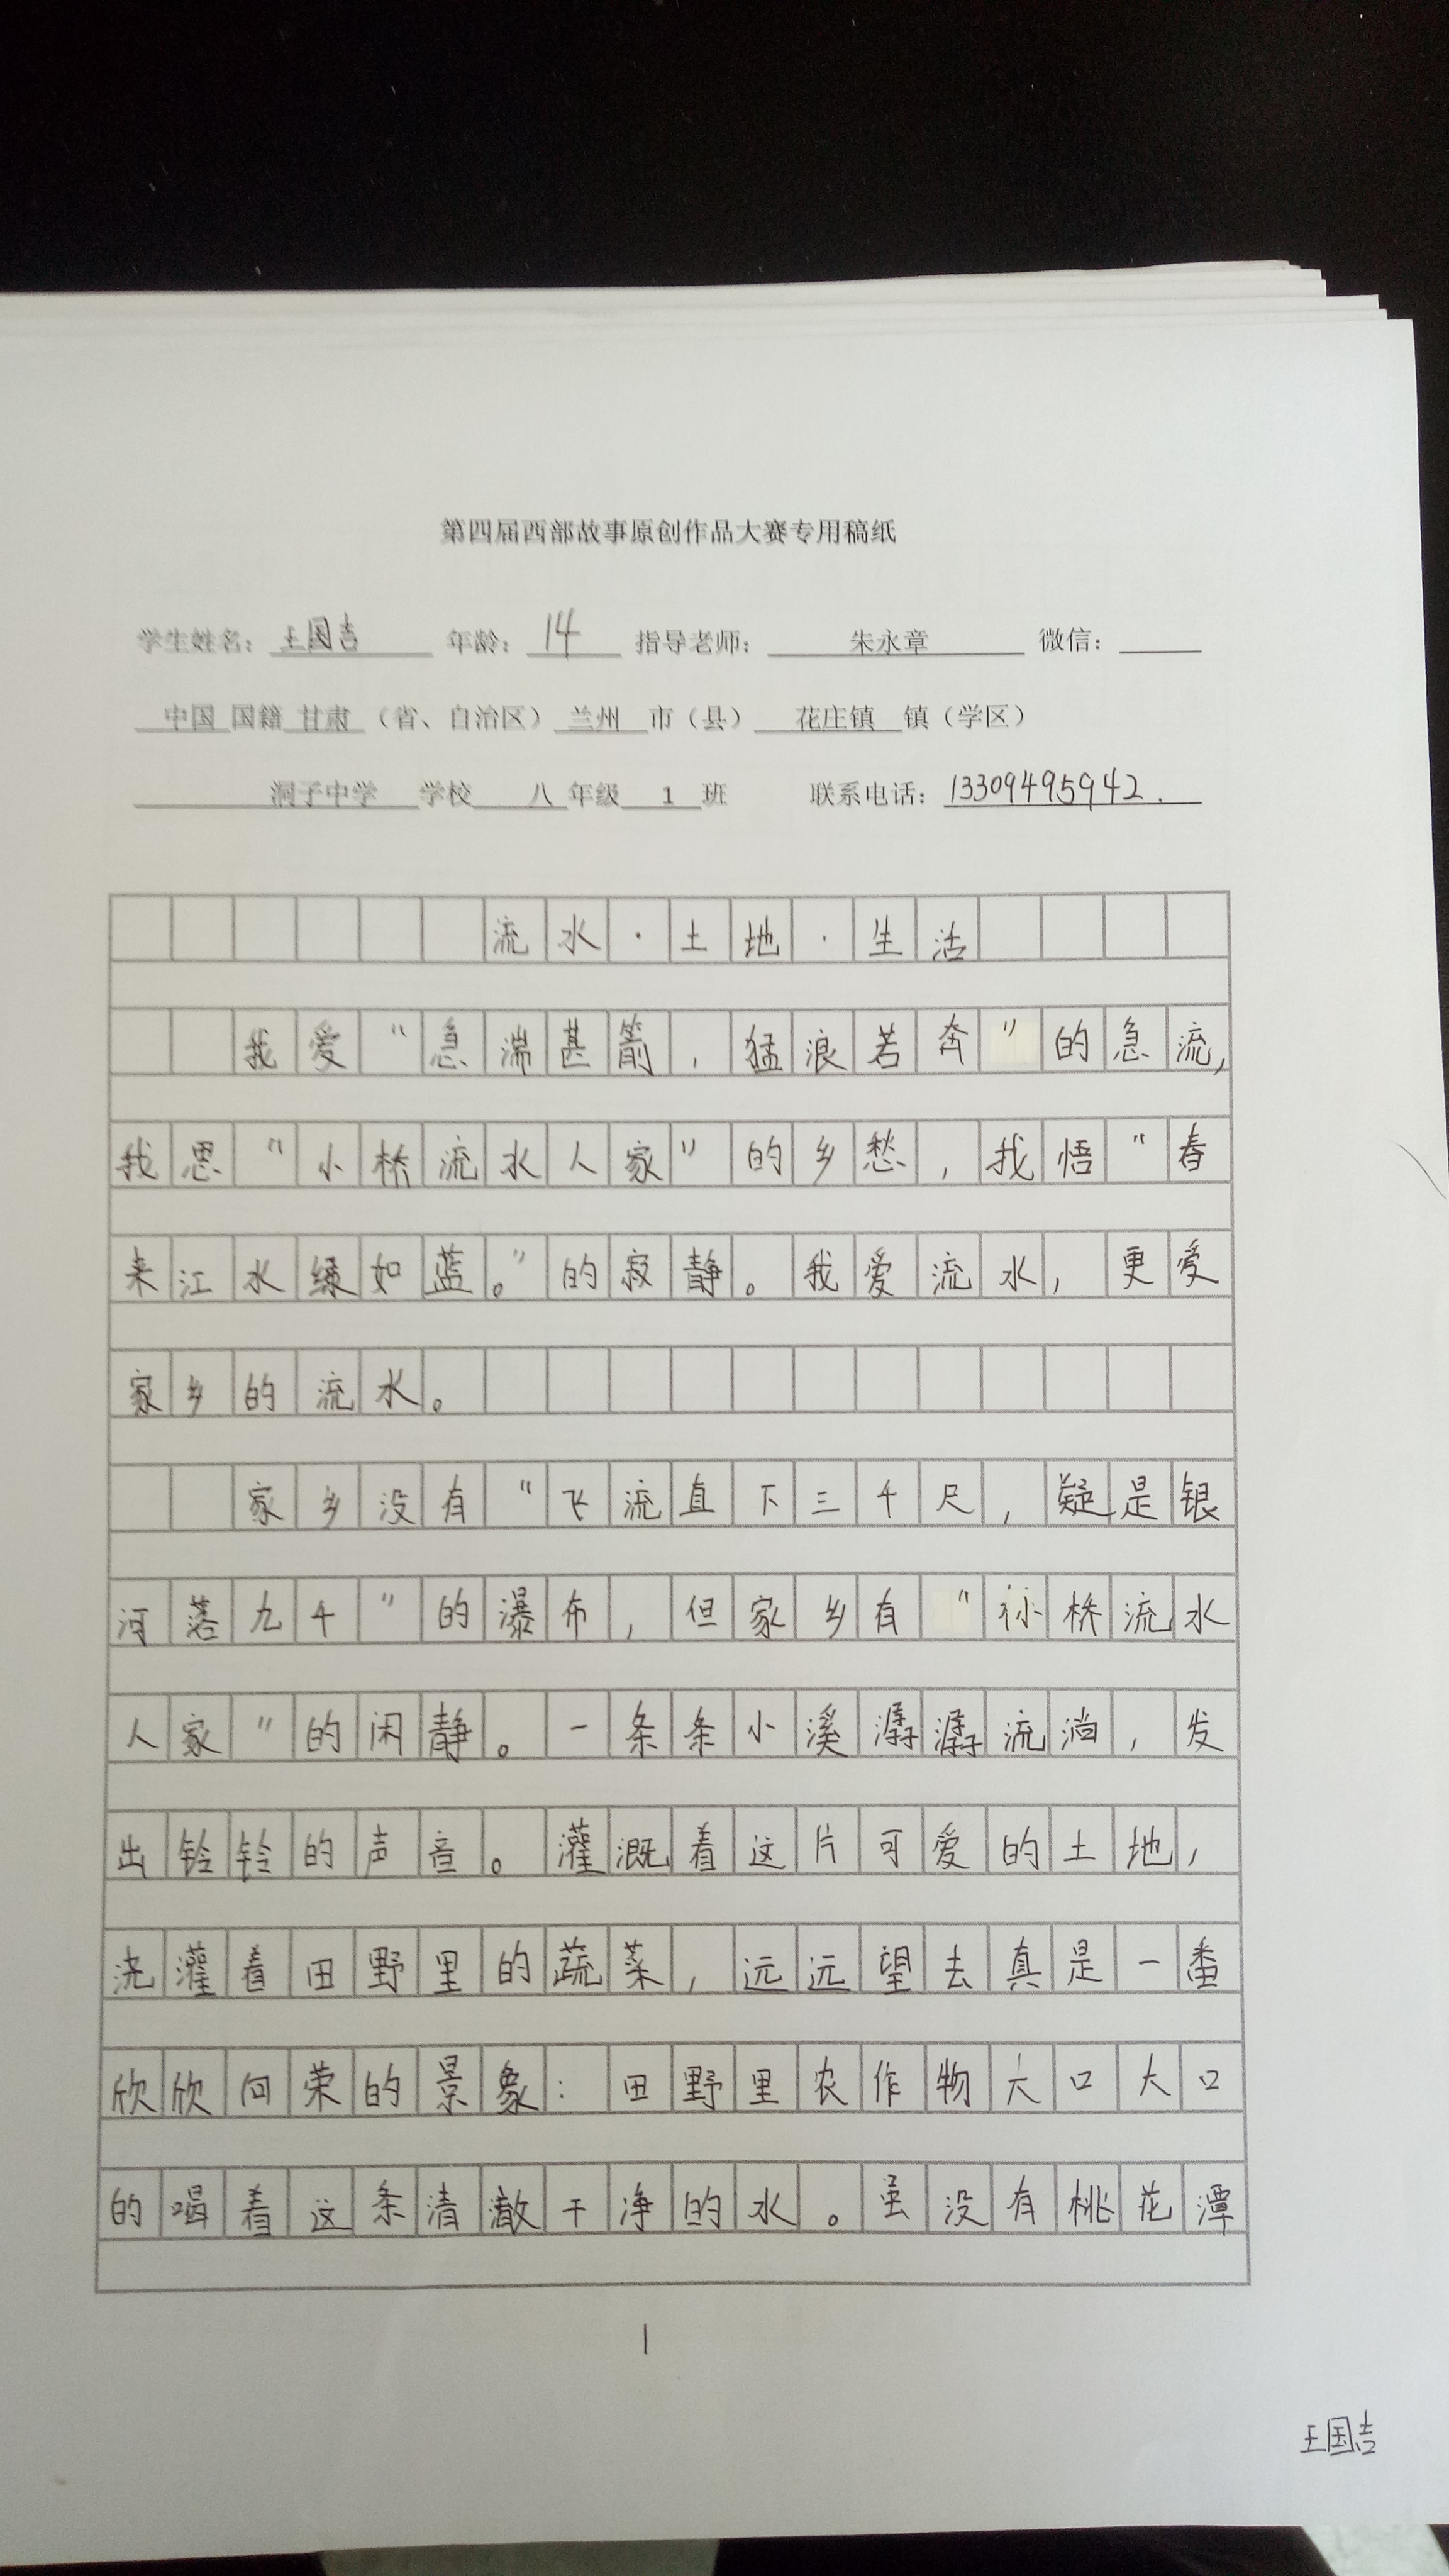 第四届西部故事原创作品大赛专用稿纸
学生姓名： 王国吉 年龄： 14 指导老师： 朱永章 微信：
中国 国籍 甘肃 （省、自治区） 兰州 市（县） 花庄镇 镇（学区）
洞子中学 学校 八 年级 1 班 联系电话： 13309495942.
流水·土地·生活
我爱“急湍甚箭，猛浪若奔”的急流，
我思“小桥流水人家”的乡愁，我悟“春
来江水绿如蓝。”的寂静。我爱流水，更爱
家乡的流水。
家乡没有“飞流直下三千尺，疑是银
河落九千”的瀑布，但家乡有“小桥流水
人家”的闲静。一条条小溪潺潺流淌，发
出铃铃的声音。灌溉着这片可爱的土地，
浇灌着田野里的蔬菜，远远望去真是一番
欣欣向荣的景象：田野里农作物大口大口
的喝着这条清澈干净的水。虽没有桃花潭
1
王国吉